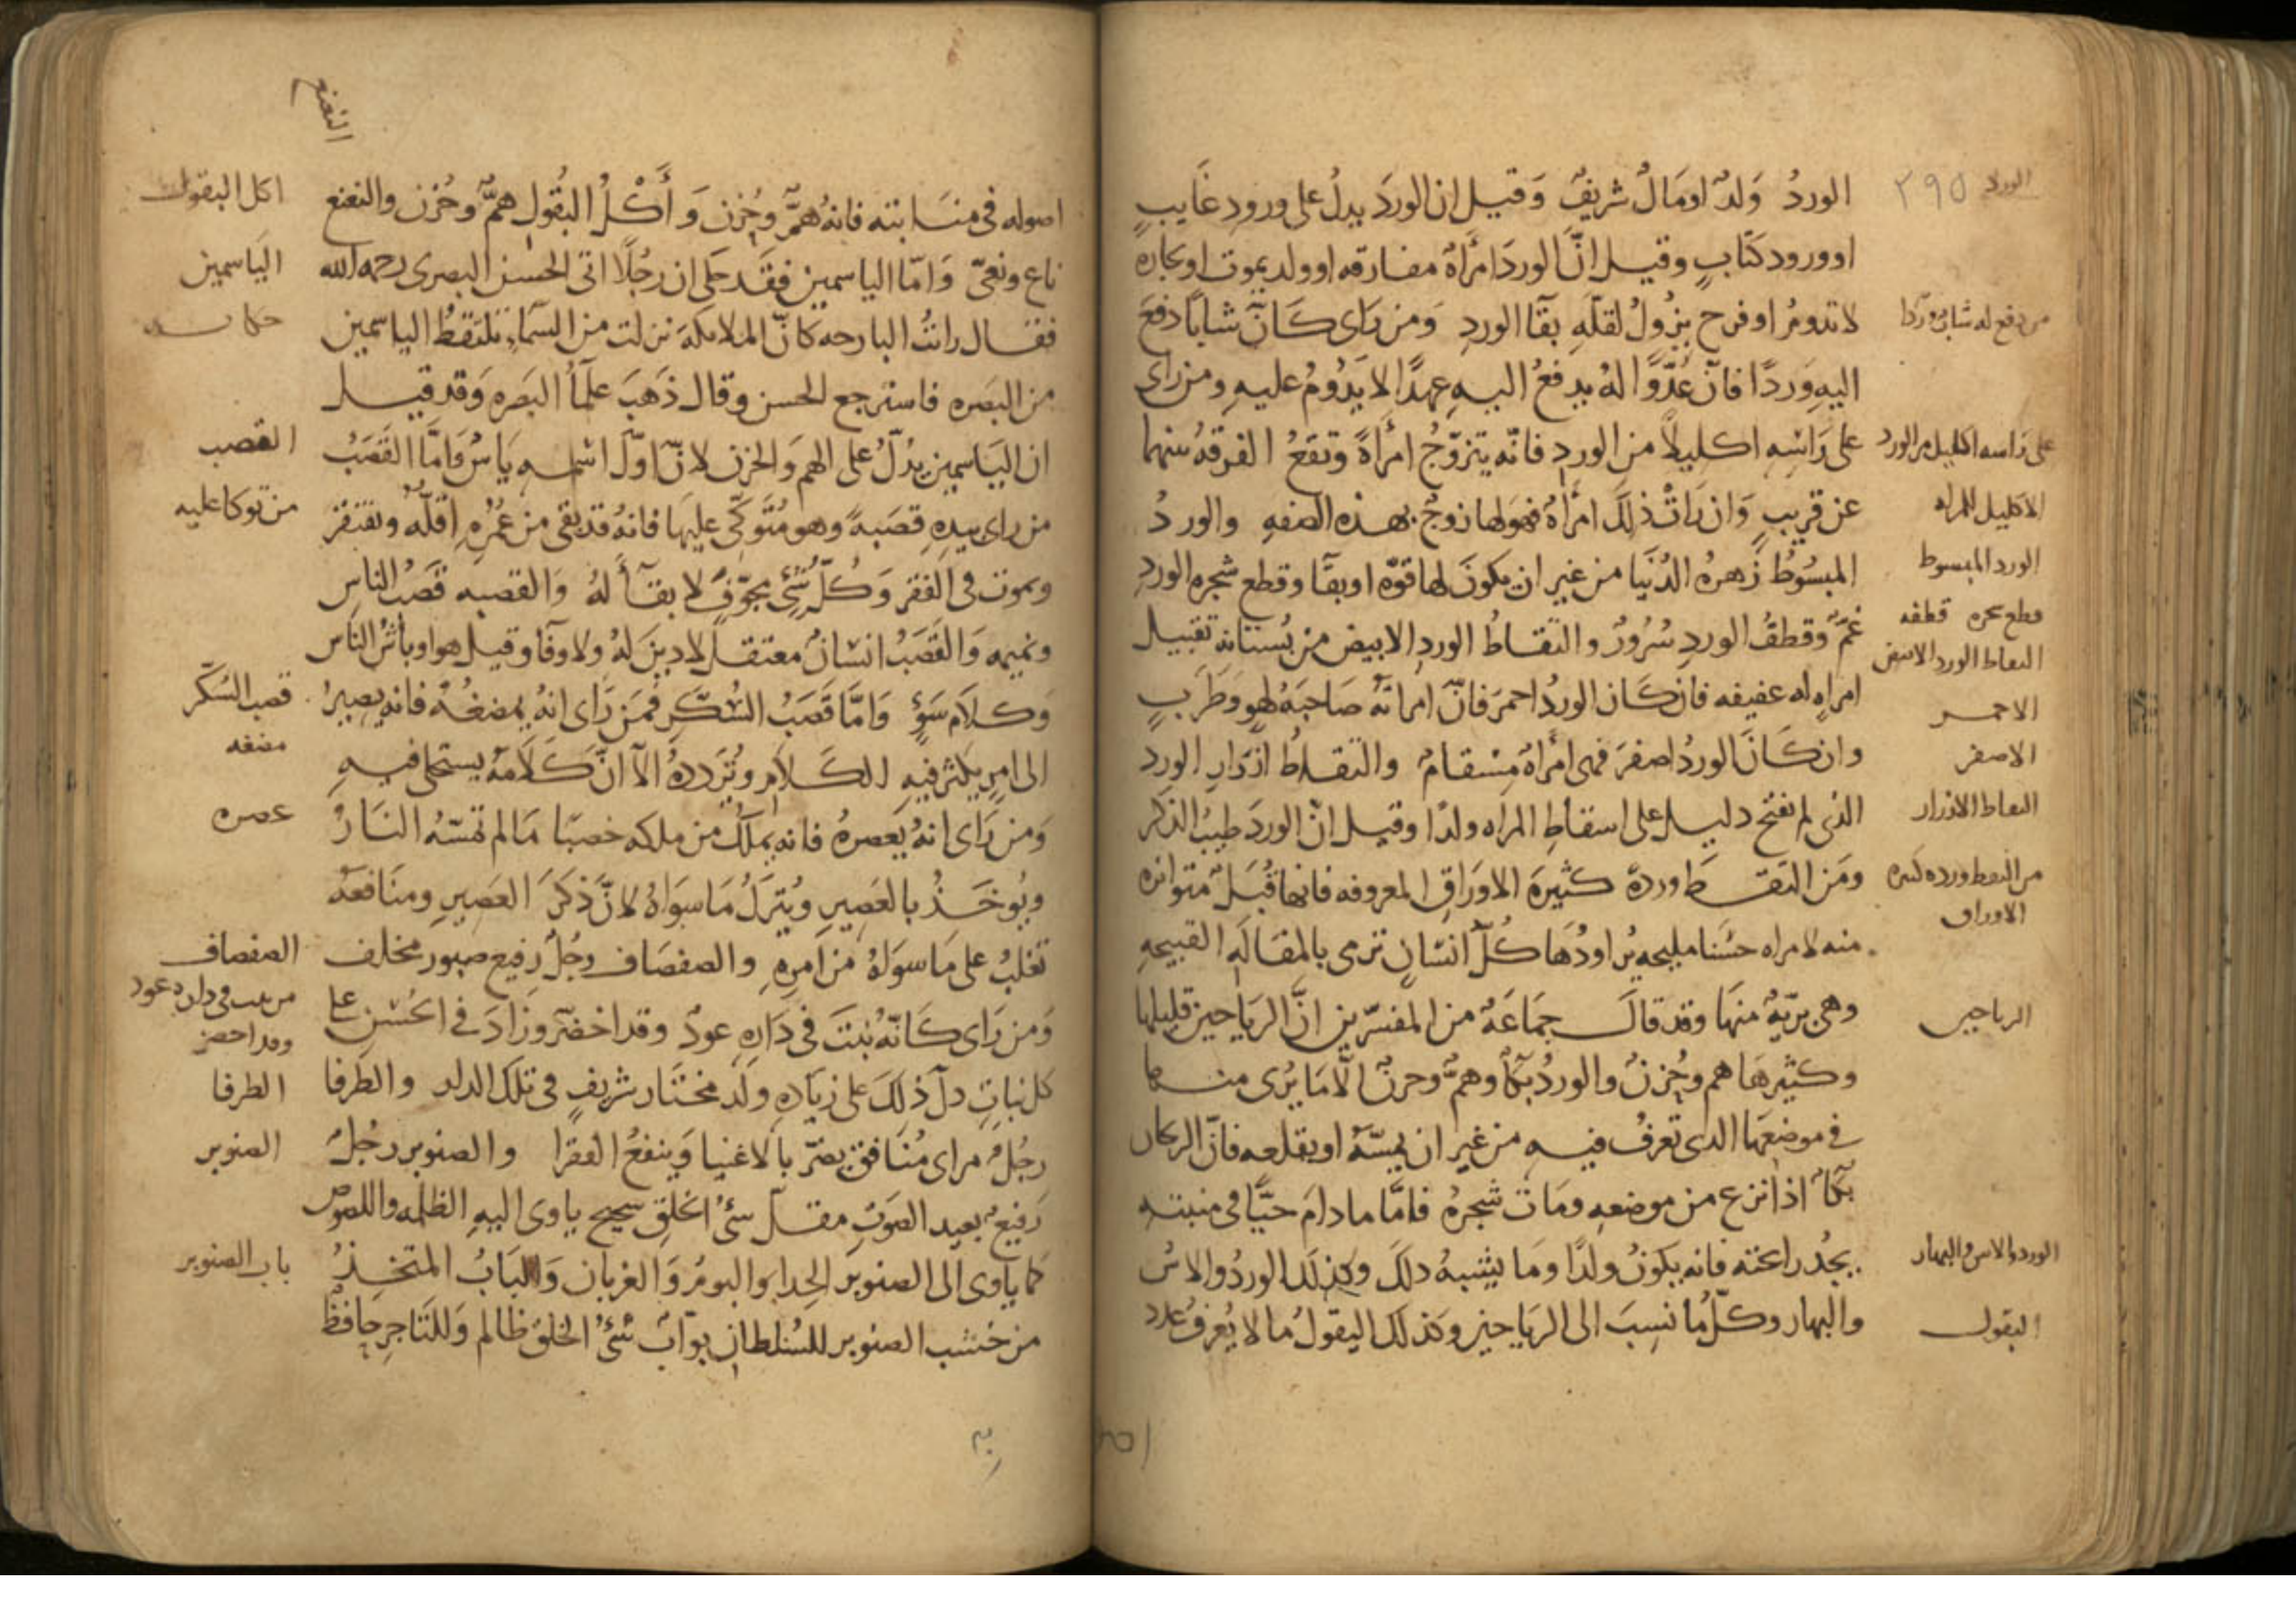 الورد ٢٩٥
الوردُ وَلدٌ اومَالٌ شريفٌ وَقيل ان الوردَ يدلُ على ورودِ غَايبٍ
اوورود كتابٍ وقيل انّ الوردَ امرَاةٌ مفارقه اوولد يموت اوتجاره
لاتدومُ اوفرح يزُولُ لقلّهِ بقَآ الوردِ وَمن رَاى كَانّ شابًا دفعَ
اليهِ وَردًا فانّ عُدّوًّا لهُ يدفعُ اليهِ عهدًا لايَدُومُ عليهِ ومن رَاى
على رَاسِهِ اكليلًا من الورد فانّه يتزوّجُ امرَاةً وتقعُ الفرقهُ بينهما
عن قريبٍ وَان رَاتْ ذلكَ امرَاةٌ فهوَلها زوجٌ بهذه الصفهِ والوردُ
المبسُوُطُ زَهرهُ الدُنيَا من غيرِ ان يكونَ لها قوّه اوبقَا وقطع شجرهِ الوردِ
غمٌ وَقطفُ الوردِ سُرُورٌ والتقاطُ الوردِ الابيض من بُستانه تقبيل
امراهٍ له عفيفه فان كَان الوردُ احمرَ فانّ امراتهُ صَاحبَهُ لهوٍ وَطرَبٍ
وان كَانَ الوردُ اصفرَ فهى امرَاةٌ مِسْقامٌ والتقاطُ ازرَارِ الوردِ
الذى لم يفتح دليل على اسقاطِ المراه ولدًا وقيل انّ الوردَ طيبُ الذكر
ومَن التقطَ وردهً كثيرهَ الاورَاقِ المعروفه فانها قُبَلٌ متواتره
منه لامراه حسْنا مليحه يُراودُهَا كُلّ انسَانٍ ترمى بالمقَالَهِ القبيحهِ
وهى بريّهٌ منهَا وقد قالَ جمَاعَهٌ من المفسّرين انَّ الريَاحين قليلها
وكثيرهَا هم وحُزنٌ والوردُ بكآٌ وهمٌ وحزنٌ الّامَا يرُى منها
فى موضعهَا الذى تعرفُ فيهِ من غيرِ ان يمسّهُ اويقلعه فانّ الريحان
بكآٌ اذا نزع من موضعهِ ومَات شجرهُ فامَّا مادامَ حيًّا فى منبتهِ
يجدُ رائحته فانه يكونُ ولدًا ومَا يشبهُ ذلكَ وكذلكَ الوردُ والاسُ
والبهار وكلّ مانسِبَ الى الريَاحين وكذلكَ البقولُ مالايُعرفُ عدد
من دفع له شابٌ وردًا
على رَاسه اكليل من الورد
الاكليل للمراه
الورد المبسوط
قطع شجره قطفه
التقاط الورد الابيض
الاحمر
الاصفر
التقاط الازرار
من التقط ورده كثيره
الاوراق
الرياحين
الورد والاس والبهار
البقول
النعنع
اصوله فى منَابته فانهُ همٌّ وحُزن وَأَكْلُ البُقُولِ همٌّ وحُزن والنعنع
ناعٍ ونعىّ وَامّا الياسمين فقَد حكى ان رجُلًا اتى الحسن البصرى رحمه الله
فقال راتُ البارحه كانّ الملايكهَ نزلت من السمَآءِ تلتقطُ الياسمين
من البصَره فاسترجع الحسن وقال ذَهبَ علمَآءُ البَصَره وَقد قيل
ان اليَاسمين يدُلُّ على الهم وَالحزن لانّ اوّلَ اسْمهِ يَاسٌ وَامَّا القَصَبُ
من راى بيدِهِ قصَبهً وهو مُتّوكّئ عليهَا فانهُ قد بقى من عُمْرهِ اقلّهُ ويفتقر
ويموت فى الفقر وَكُلّ شَئٍ مجوّفٍ لا بقآَ لهُ وَالقصبه قصَبُ الناسِ
ونميمه وَالقَصَبُ انسَانٌ معتقل لادينَ لهُ ولاوفَا وقيل هو اوباشُ النَاسِ
وَكلَام سَوءٍ وَامَّا قَصَبُ السُّكّرِ فمَن رَاى انهُ يمضغُهُ فانه يصِيرُ
الى امرٍ يكثر فيهِ الكلَام وتُرَددهُ الّا انَّ كَلَامهُ يستحلى فيهِ
وَمن رَاى انهُ يَعصرهُ فانه يملكُ من ملكه خصبًا مَالم تمسّهُ النَارُ
ويُوخَذُ بالعَصِيرِ ويُترَكُ مَاسوَاهُ لانّ ذكرَ العَصِيرِ ومنَافعَهُ
تغلبُ على مَاسوَاهُ من امرِهِ والصفصَاف رجُلٌ رفيع صبور مخلف
وَمن رَاى كَانّهُ نبتَ فى دَارهِ عودٌ وقد اخضرّ وزَادَ فى الحُسْنِ على
كل نباتٍ دلّ ذلكَ على زيَادهِ ولَد مختَار شريفٍ فى تلكَ الدار والطرفا
رجُلٌ مراى مُنَافق يضرّ بالاغنيا وَينفعُ الفقرا والصنوبر رجُلٌ
رَفيع بعيد الصَوت مقلّ سئُ الخلقِ شحيح ياوى اليهِ الظلمه واللصوص
كما ياوى الى الصنوبر الحِدا والبومُ وَالغربان وَالبَابُ المتّخِذُ
من خشب الصنوبر للسُلطانِ بوّابٌ سَئُ الخلق ظالم وَللتَاجِر حَافظٌ
اكل البقول
اليَاسمين
حكايه
القصب
من توكا عليه
قصب السّكّر
مضغه
عصره
الصفصاف
من نبت فى داره عود
وقد اخضر
الطرفا
الصنوبر
باب الصنوبر